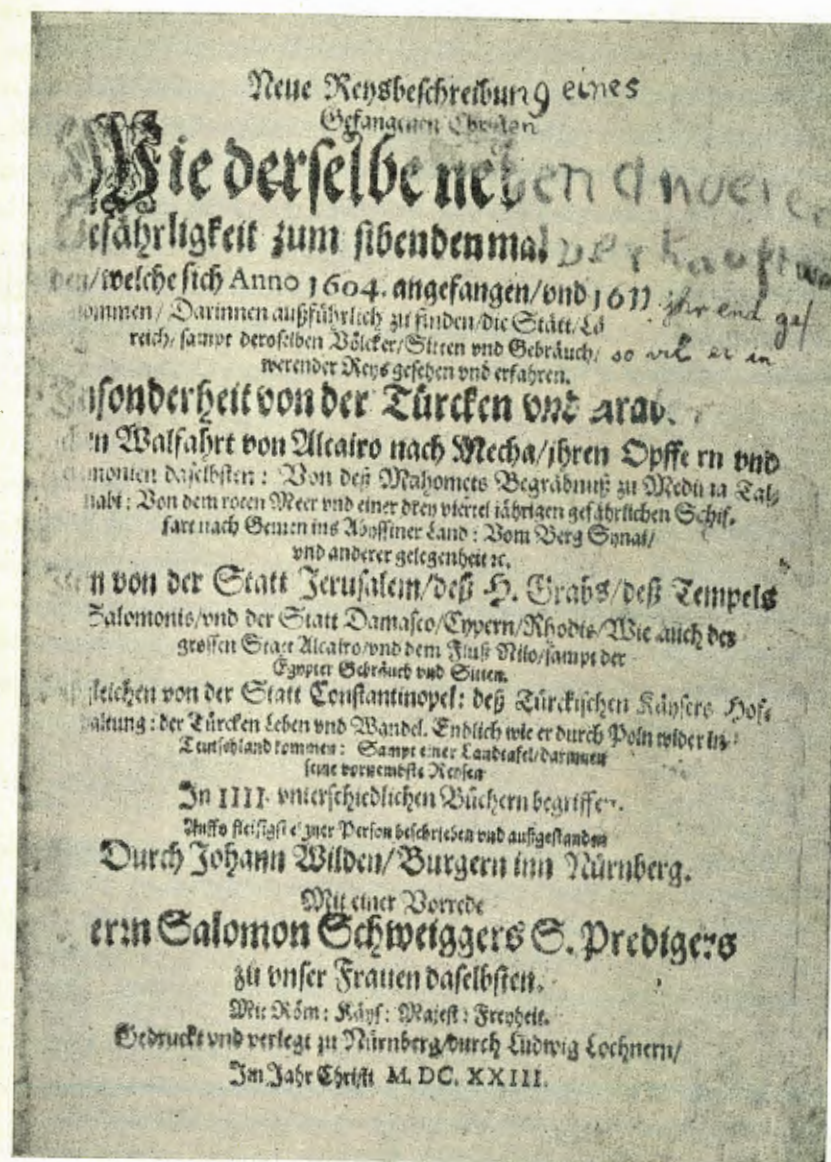 Neue Reysbeschreibung eines
Gefangenen Christen
Wie derselbe neben anderer
efährligkeit zum sibendenmal verkaufft wor
den/welche sich Anno 1604. angefangen/vnd 1611 jhr end ge/
ommen/ Darinnen außführlich zu finden/die Stätt/Lä
reich/ sampt deroselben Völcker/Sitten vnd Gebräuch/ so vil er in
werender Reys gesehen vnd erfahren.
Insonderheit von der Türcken vnd Arab.
n Walfahrt von Alcairo nach Mecha/ihren Opffern vnd
monien daselbsten: Von deß Mahomets Begräbnuß zu Medina Tal-
nabi: Von dem roten Meer vnd einer drey viertel jährigen gefährlichen Schif-
fart nach Gemen ins Abyssiner Land: Vom Berg Synai/
vnd anderer gelegenheit ꝛc.
n von der Statt Jerusalem/deß H. Grabs/deß Tempels
Salomonis/vnd der Statt Damasco/Cypern/Rhodis/Wie auch des
grossen Statt Alcairo/vnd dem Fluß Nilo/sampt der
Egypter Gebräuch vnd Sitten.
gleichen von der Statt Constantinopel: deß Türckischen Käysers Hof-
altung: der Türcken Leben vnd Wandel. Endlich wie er durch Poln wider in
Teutschland kommen: Sampt einer Landtafel/darinnen
seine vornembste Reysen
In IIII. vnterschiedlichen Büchern begriffen.
Auffs fleisigst eigner Person beschrieben vnd außgestanden
Durch Johann Wilden/Burgern inn Nürnberg.
Mit einer Vorrede
errn Salomon Schweiggers S. Predigers
zu vnser Frauen daselbsten.
Mit Röm: Käys: Majest: Freyheit.
Gedruckt vnd verlegt zu Nürnberg/durch Ludwig Lochnern/
Im Jahr Christi M. DC. XXIII.